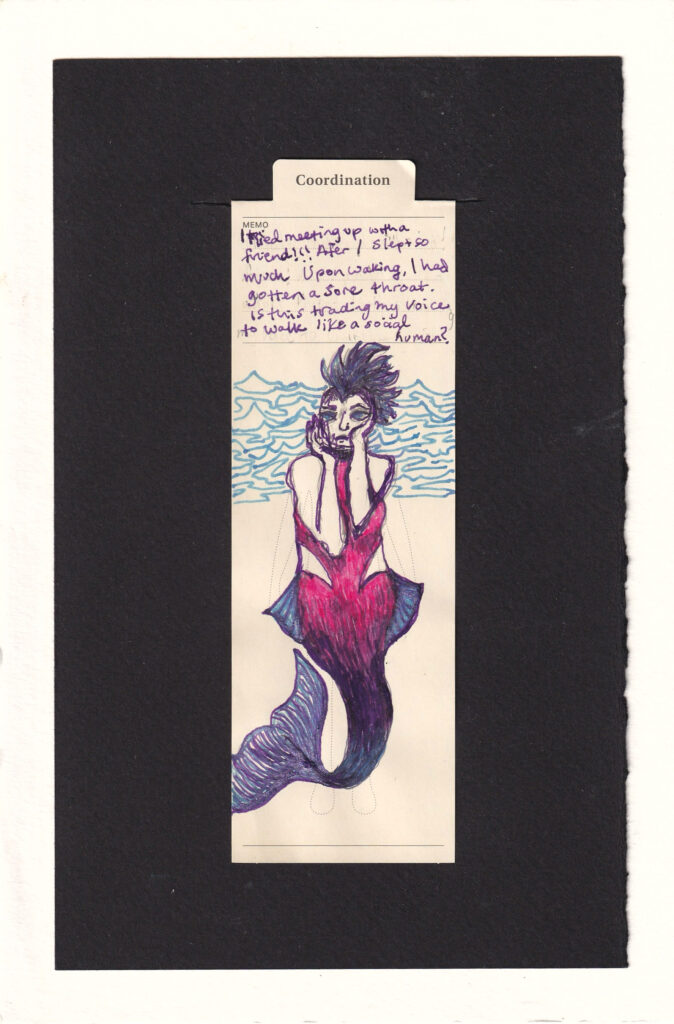 Coordination
MEMO
I tried meeting up with a
friend!!! Afer I slept so
much Upon waking, I had
gotten a sore throat.
Is this trading my voice
to walk like a social
human?